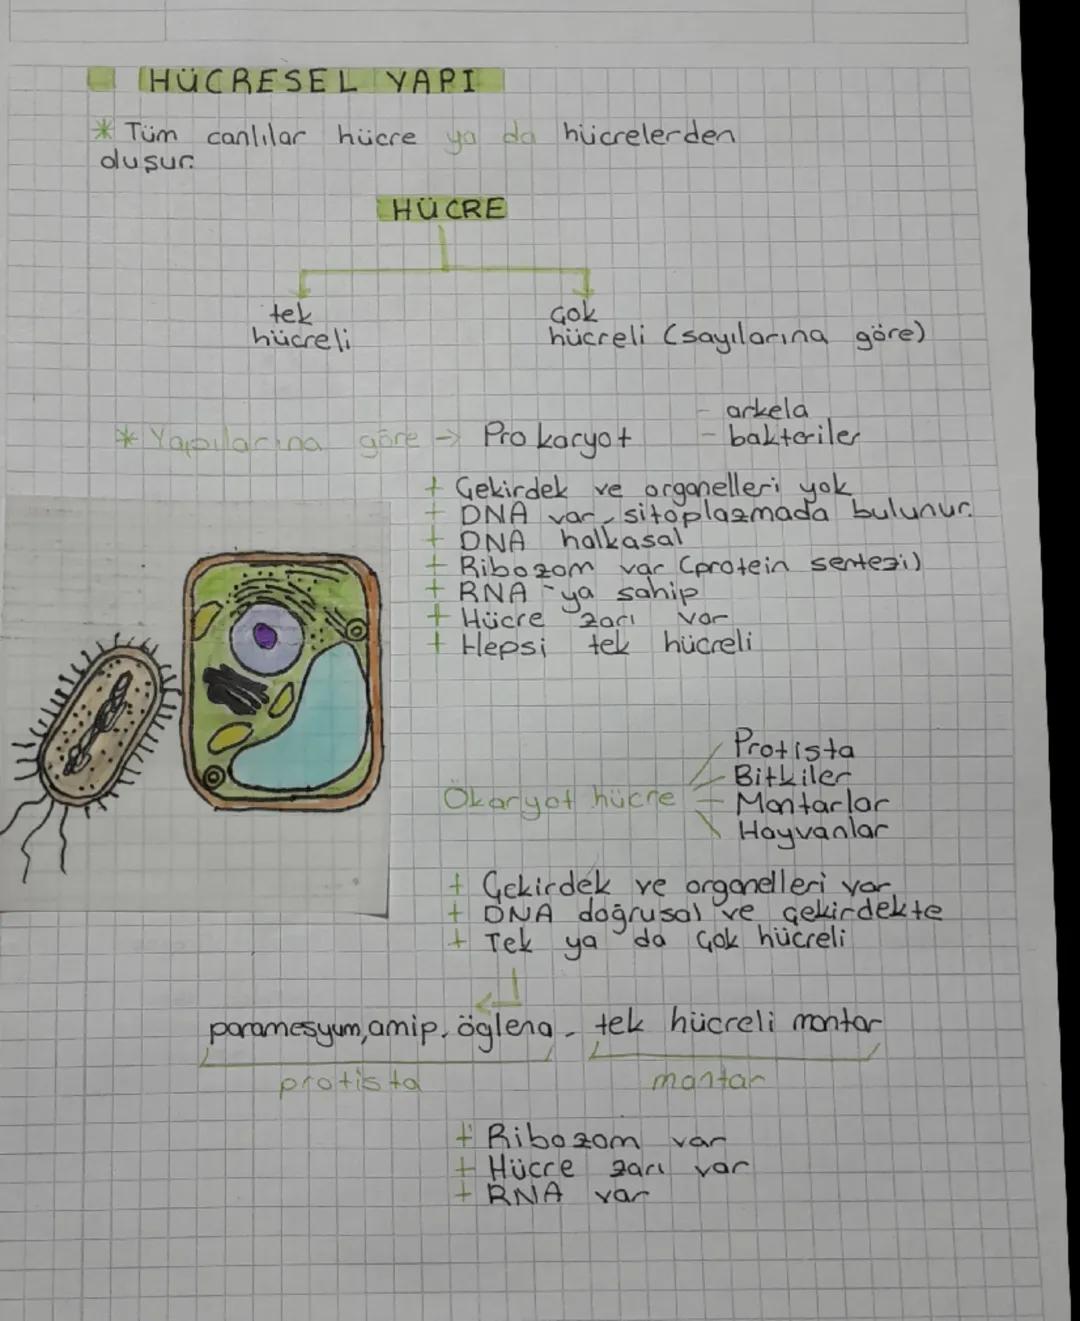 HÜCRESEL YAPI
* Tüm canlılar hücre ya da hücrelerden
oluşur.
HÜCRE
tek
hücreli
Çok
hücreli (sayılarına göre)
- arkela
* Yapılarına göre → Prokaryot - bakteriler
+ Çekirdek ve organelleri yok
+ DNA var, sitoplazmada bulunur.
+ DNA halkasal
+ Ribozom var (protein sentezi)
+ RNA-ya sahip
+ Hücre zarı var
+ Hepsi tek hücreli
Protista
Bitkiler
Ökaryot hücre - Mantarlar
Hayvanlar
+ Çekirdek ve organelleri var
+ DNA doğrusal ve çekirdekte
+ Tek ya da Çok hücreli
paramesyum, amip, öglena, tek hücreli mantar
protista mantar
+ Ribozom var
+ Hücre zarı var
+ RNA var